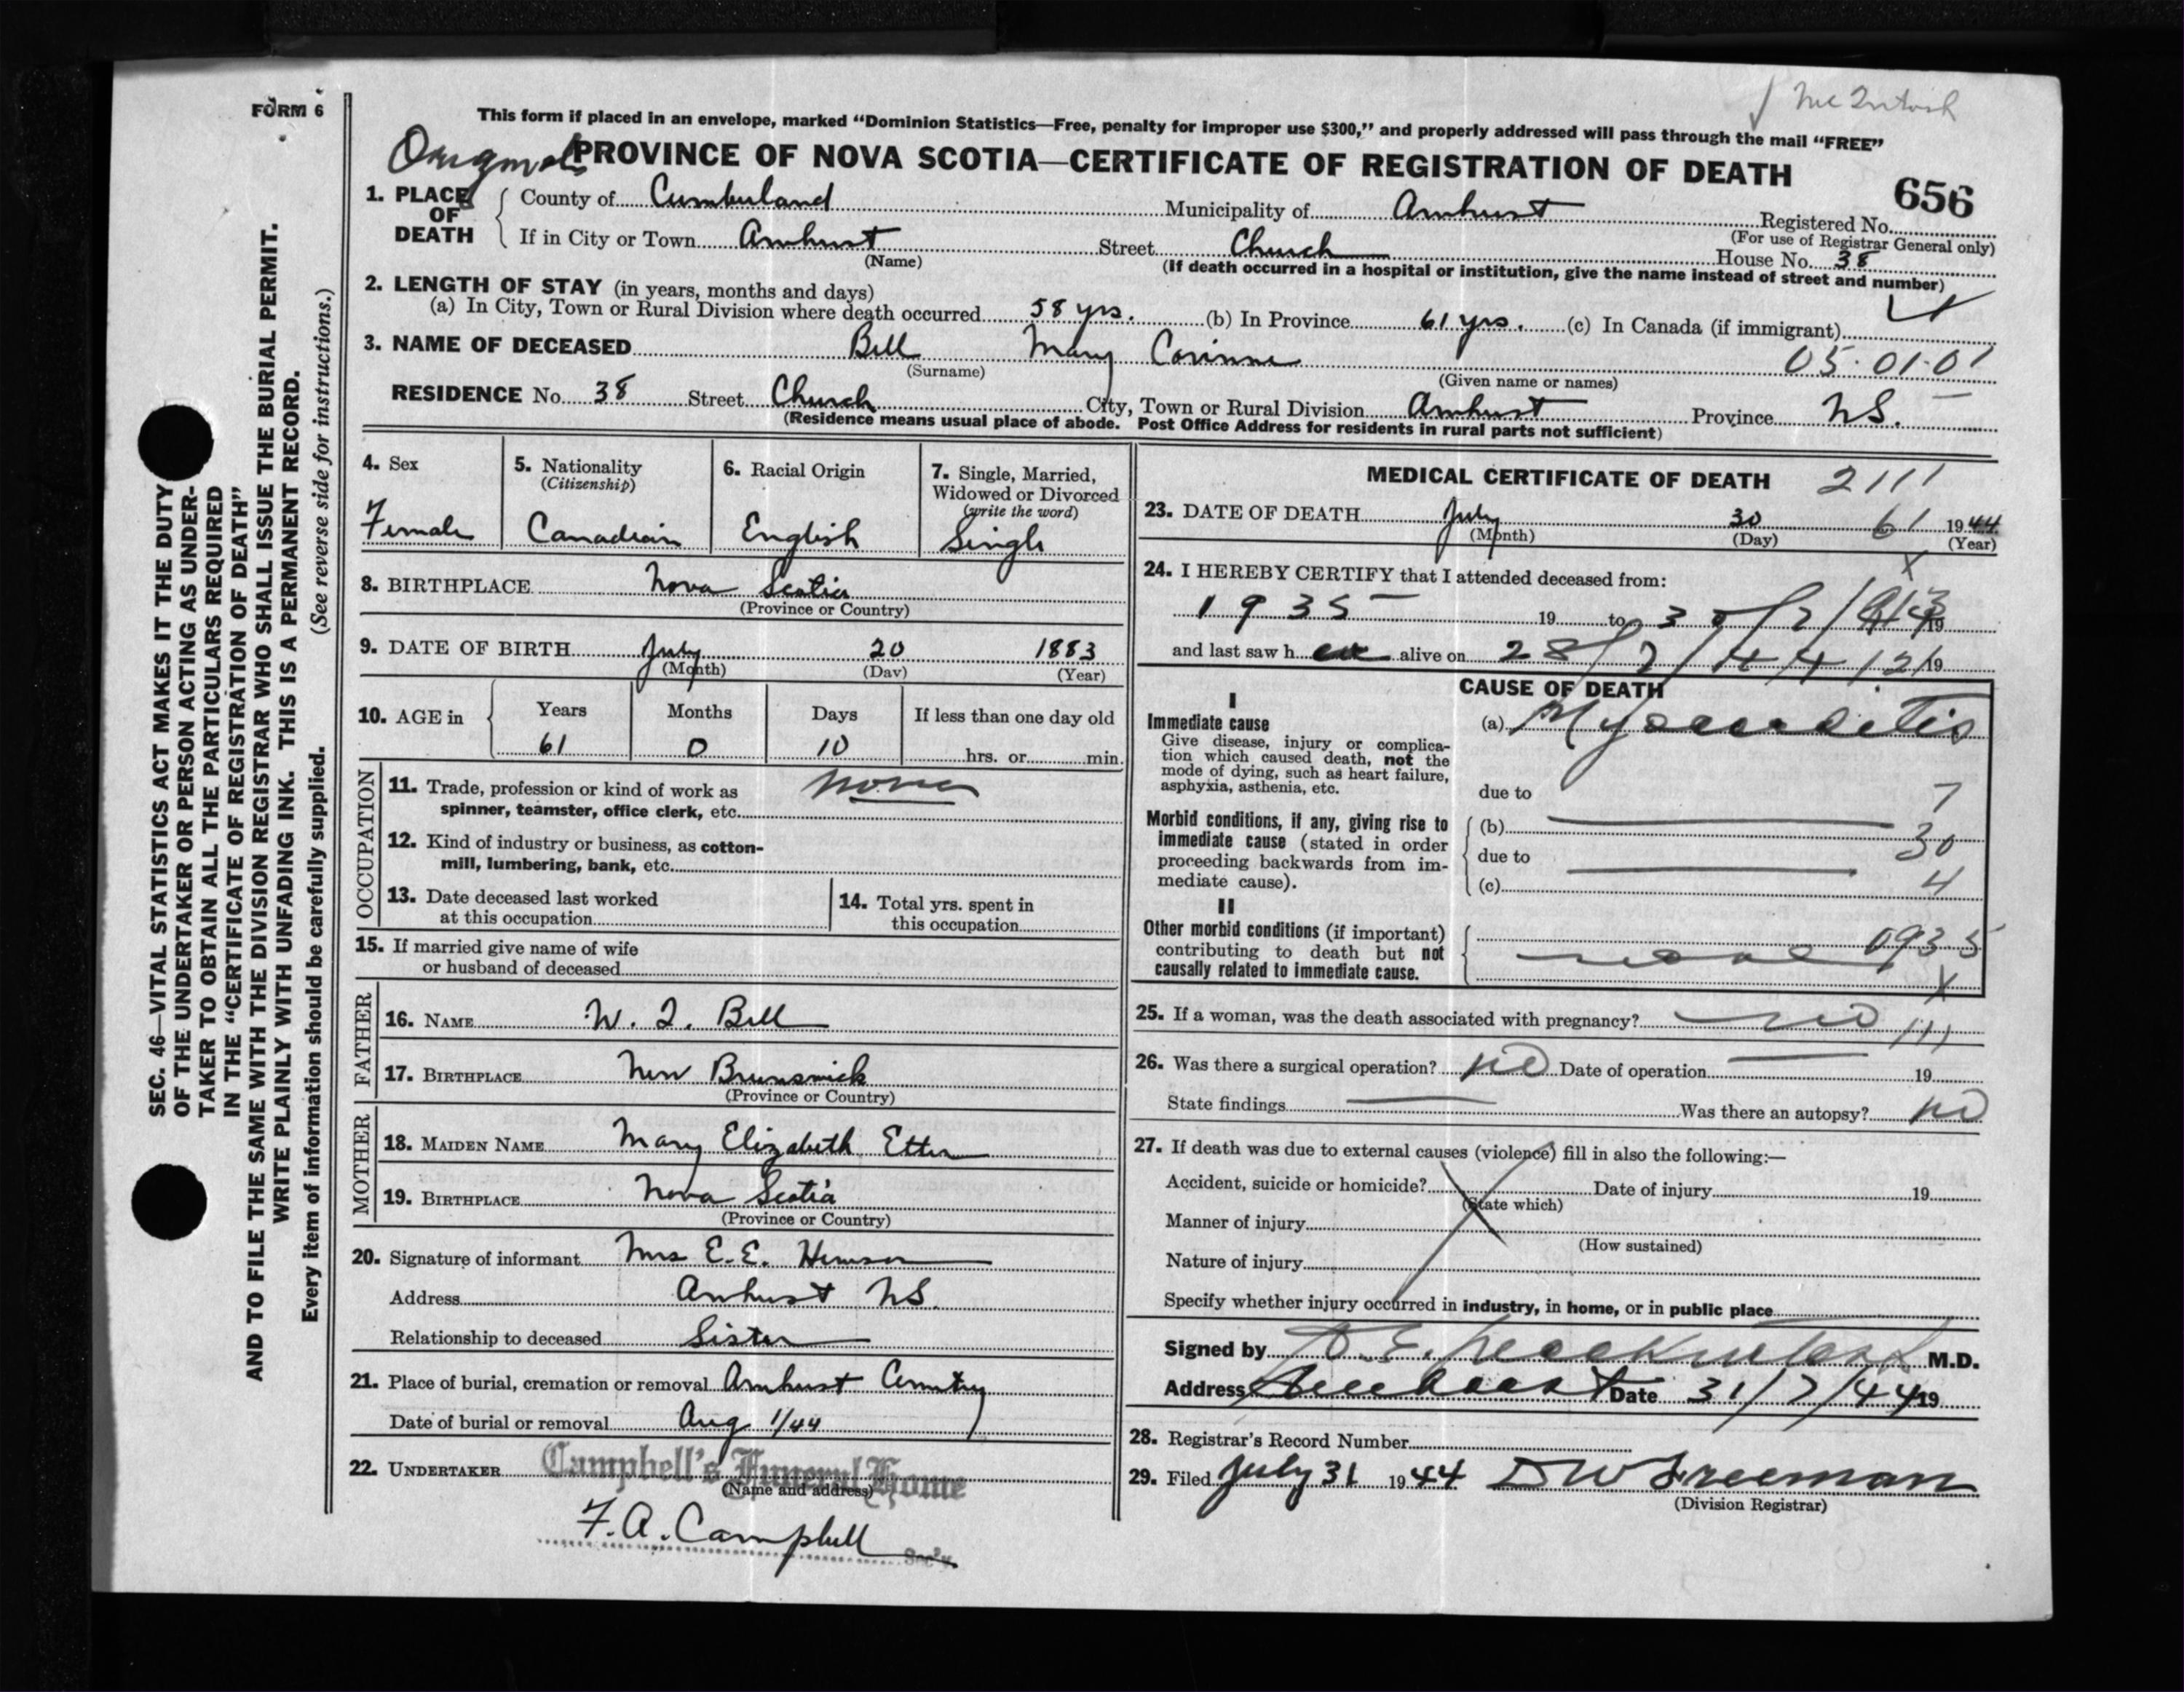 FORM 6
McIntosh
This form if placed in an envelope, marked "Dominion Statistics—Free, penalty for improper use $300," and properly addressed will pass through the mail "FREE"
Original PROVINCE OF NOVA SCOTIA—CERTIFICATE OF REGISTRATION OF DEATH
656
1. PLACE OF DEATH County of Cumberland Municipality of Amherst Registered No.
(For use of Registrar General only)
If in City or Town Amherst Street Church House No. 38
(Name) (If death occurred in a hospital or institution, give the name instead of street and number)
2. LENGTH OF STAY (in years, months and days)
(a) In City, Town or Rural Division where death occurred 58 yrs. (b) In Province 61 yrs. (c) In Canada (if immigrant)
3. NAME OF DECEASED Bell Mary Corinne 05.01.01
(Surname) (Given name or names)
RESIDENCE No. 38 Street Church City, Town or Rural Division Amherst Province N.S.
(Residence means usual place of abode. Post Office Address for residents in rural parts not sufficient)
4. Sex 5. Nationality (Citizenship) 6. Racial Origin 7. Single, Married, Widowed or Divorced (write the word)
Female Canadian English Single
8. BIRTHPLACE Nova Scotia
(Province or Country)
9. DATE OF BIRTH July 20 1883
(Month) (Day) (Year)
10. AGE in Years Months Days If less than one day old
61 0 10 hrs. or min.
OCCUPATION
11. Trade, profession or kind of work as none
spinner, teamster, office clerk, etc.
12. Kind of industry or business, as cotton-
mill, lumbering, bank, etc.
13. Date deceased last worked at this occupation
14. Total yrs. spent in this occupation
15. If married give name of wife
or husband of deceased
FATHER
16. NAME W. T. Bell
17. BIRTHPLACE New Brunswick
(Province or Country)
MOTHER
18. MAIDEN NAME Mary Elizabeth Etter
19. BIRTHPLACE Nova Scotia
(Province or Country)
20. Signature of informant Mrs E. E. Hewson
Address Amherst N.S.
Relationship to deceased Sister
21. Place of burial, cremation or removal Amherst Cemetery
Date of burial or removal Aug 1/44
22. UNDERTAKER Campbell's Funeral Home
(Name and address)
F. A. Campbell Sec'y.
MEDICAL CERTIFICATE OF DEATH 2111
23. DATE OF DEATH July 30 61 1944
(Month) (Day) (Year)
24. I HEREBY CERTIFY that I attended deceased from:
1935 19 to 30/7/44 19
and last saw h er alive on 28/7/44 121 19
CAUSE OF DEATH
I
Immediate cause
Give disease, injury or complica-
tion which caused death, not the
mode of dying, such as heart failure,
asphyxia, asthenia, etc.
(a) Myocarditis
due to 7
Morbid conditions, if any, giving rise to
immediate cause (stated in order
proceeding backwards from im-
mediate cause).
(b) 30
due to
(c) 4
II
Other morbid conditions (if important)
contributing to death but not
causally related to immediate cause.
none 0935
X
25. If a woman, was the death associated with pregnancy? no 111
26. Was there a surgical operation? no Date of operation 19
State findings Was there an autopsy? no
27. If death was due to external causes (violence) fill in also the following:—
Accident, suicide or homicide? Date of injury 19
(State which)
Manner of injury
(How sustained)
Nature of injury
Specify whether injury occurred in industry, in home, or in public place
Signed by D. E. Mackintosh M.D.
Address Amherst Date 31/7/44 19
28. Registrar's Record Number
29. Filed July 31 1944 D W Freeman
(Division Registrar)
SEC. 46—VITAL STATISTICS ACT MAKES IT THE DUTY
OF THE UNDERTAKER OR PERSON ACTING AS UNDER-
TAKER TO OBTAIN ALL THE PARTICULARS REQUIRED
IN THE "CERTIFICATE OF REGISTRATION OF DEATH"
AND TO FILE THE SAME WITH THE DIVISION REGISTRAR WHO SHALL ISSUE THE BURIAL PERMIT.
WRITE PLAINLY WITH UNFADING INK. THIS IS A PERMANENT RECORD.
Every item of information should be carefully supplied. (See reverse side for instructions.)